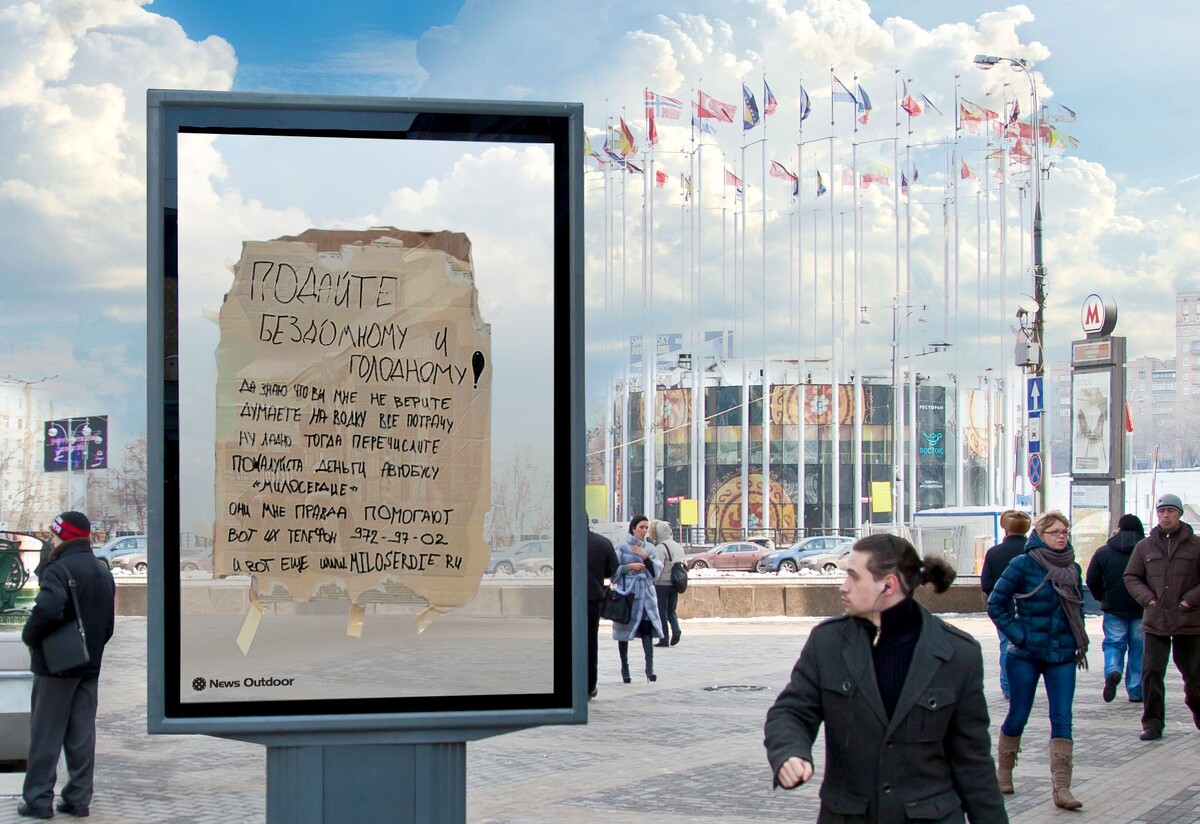 ПОДАЙТЕ
БЕЗДОМНОМУ И
ГОЛОДНОМУ!
ДА ЗНАЮ ЧТО ВЫ МНЕ НЕ ВЕРИТЕ
ДУМАЕТЕ НА ВОДКУ ВСЕ ПОТРАЧУ
НУ ЛАДНО. ТОГДА ПЕРЕЧИСЛИТЕ
ПОЖАЛУЙСТА ДЕНЬГИ АВТОБУСУ
«МИЛОСЕРДИЕ»
ОНИ МНЕ ПРАВДА ПОМОГАЮТ
ВОТ ИХ ТЕЛЕФОН 972-97-02
И ВОТ ЕЩЕ WWW.MILOSERDIE.RU
News Outdoor
РЕСТОРАН
ВОСТОК
М